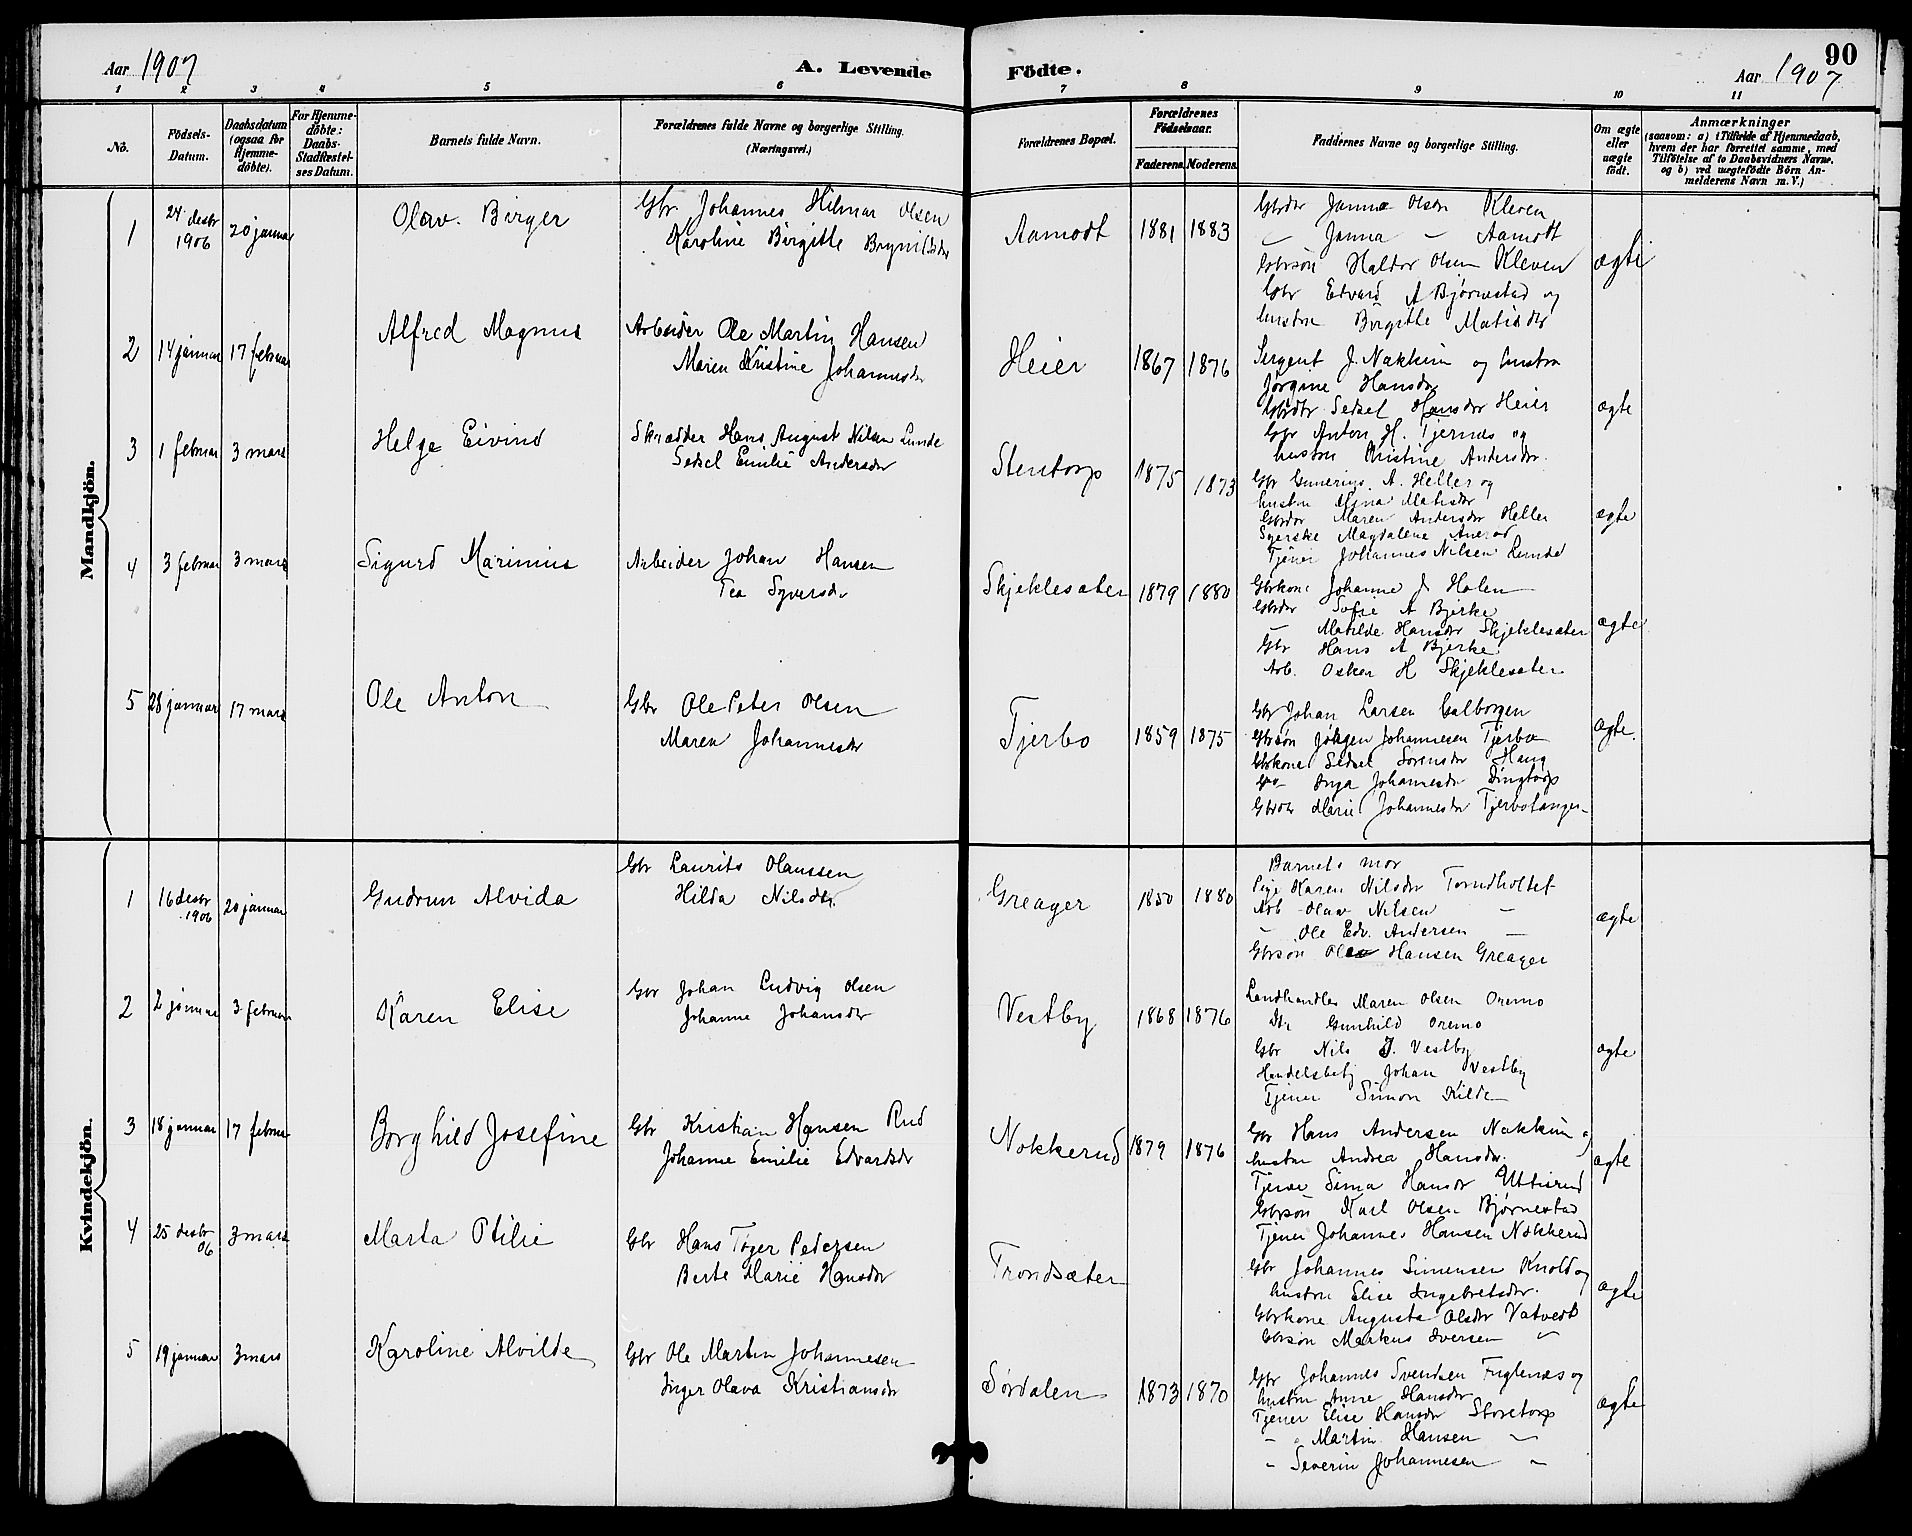 Aar 1907
A. Levende Födte.
Aar 1907
90
1 2 3 4 5 6 7 8 9 10 11
No.
Födsels-Datum.
Daabsdatum (ogsaa for Hjemmedöbte).
For Hjemmedöbte: Daabs-Stadfæstelses Datum.
Barnets fulde Navn.
Forældrenes fulde Navne og borgerlige Stilling. (Næringsvei.)
Forældrenes Bopæl.
Forældrenes Födselsaar.
Faderens. Moderens.
Faddernes Navne og borgerlige Stilling.
Om ægte eller uægte födt.
Anmærkninger
(saasom: a) i Tilfælde af Hjemmedaab, hvem der har forrettet samme, med Tilföielse af to Daabsvidners Navne, og b) ved uægtefödte Börn Anmelderens Navn m. V.)
Mandkjön.
1 24 desbr 1906 20 januar Olav. Birger
Gbr Johannes Hilmar Olsen
Karoline Birgitte Brynildsdr
Aamodt 1881 1883
Gbrdr Janna Olsen Kleven
– Janna – Aamodt
Gbrsön Haldor Olsen Kleven
Gbr Edvard A Bjørnestad og
hustru Birgitte Matisdr
ægte
2 14 januar 17 februar Alfred Magnus
Arbeider Ole Martin Hansen
Maren Kristine Johannesdr
Heier 1867 1876
Sergent J. Nakkim og hustru
Jørgine Hansdr
Gbrdtr Sedsel Hansdr Heier
Gbr Anton H. Tjernæs og
hustru Kristine Andersdr.
ægte
3 1 februar 3 mars Helge Eivind
Skrædder Hans August Nilsen Lunde
Sedsel Emilie Andersdr
Stentorp 1875 1873
Gbr Gunerius A. Heller og
hustru Mina Matisdr
Gbrdr Maren Andersdr Heller
Syerske Magdalene
Tjener Johannes Nilsen Lunde
ægte
4 3 februar 3 mars Sigurd Marinius
Arbeider Johan Hansen
Tea Syversdr
Skjeklesæter 1879 1880
Gbrkone Johanne J Holen
Gbrdr Sofie A Bjerke
– Matilde Hansdr Skjeklesæter
Gbr Hans A Bjerke
Arb. Oskar H Skjeklesæter
ægte
5 28 januar 17 mars Ole Anton
Gbr Ole Peter Olsen
Maren Johannesdr
Tjerbo 1859 1875
Gbr Johan Larsen
Gbrsön Jørgen Johannesen Tjerbo
Gbrkone Sedsel Sorensdr Haug
Inga Johannesdr
Marie Johannesdr Tjerbotangen
ægte.
Kvindekjön.
1 16 desbr 1906 20 januar Gudrun Alvida
Gbr Laurits Olaussen
Hilda Nilsdtr.
Greager 1850 1880
Barnets mor
Pige Karen Nilsdr Torudholtet
Arb Olaw Nilsen –
– Ole Edv. Andersen –
Gbrsön Hansen Greager
ægte
2 2 januar 3 februar Karen Elise
Gbr Johan Ludvig Olsen
Johanne Johansdr
Vestby 1868 1876
Landhandler Maren Olsen Oremo
Dtr Gunhild Oremo
Gbr Nils J. Vestby
Handelsbetj Johan Vestby
Tjener Simon Kilde
ægte
3 18 januar 17 februar Borghild Josefine
Gbr Kristian Hansen Rud
Johanne Emilie Edvardsdr
Nokkerud 1879 1876
Gbr Hans Andersen Nakkim og
hustru Andrea Hansdr.
Tjener Sina Hansdr
Gbrsön Karl Olsen Bjørnestad
Tjener Johannes Hansen Nokkerud
ægte
4 25 desbr 06 3 mars Marta Otilie
Gbr Hans Tøger Pedersen
Berte Marie Hansdr
Trondsæter
Gbr Johannes Simensen Knold og
hustru Elise Ingebretsdr.
Gbrkone Augusta Olsdr Vatvedt
Gbrsön Markus Iversen "
ægte
5 19 januar 3 mars Karoline Alvilde
Gbr Ole Martin Johannesen
Inger Olava Kristiansdr
Sørdalen 1873 1870
Gbr Johannes Svendsen Fuglenæs og
hustru Anne Hansdr
Tjener Elise Hansdr Storetorp
– Martin Hansen –
– Severin Johannesen –
ægte